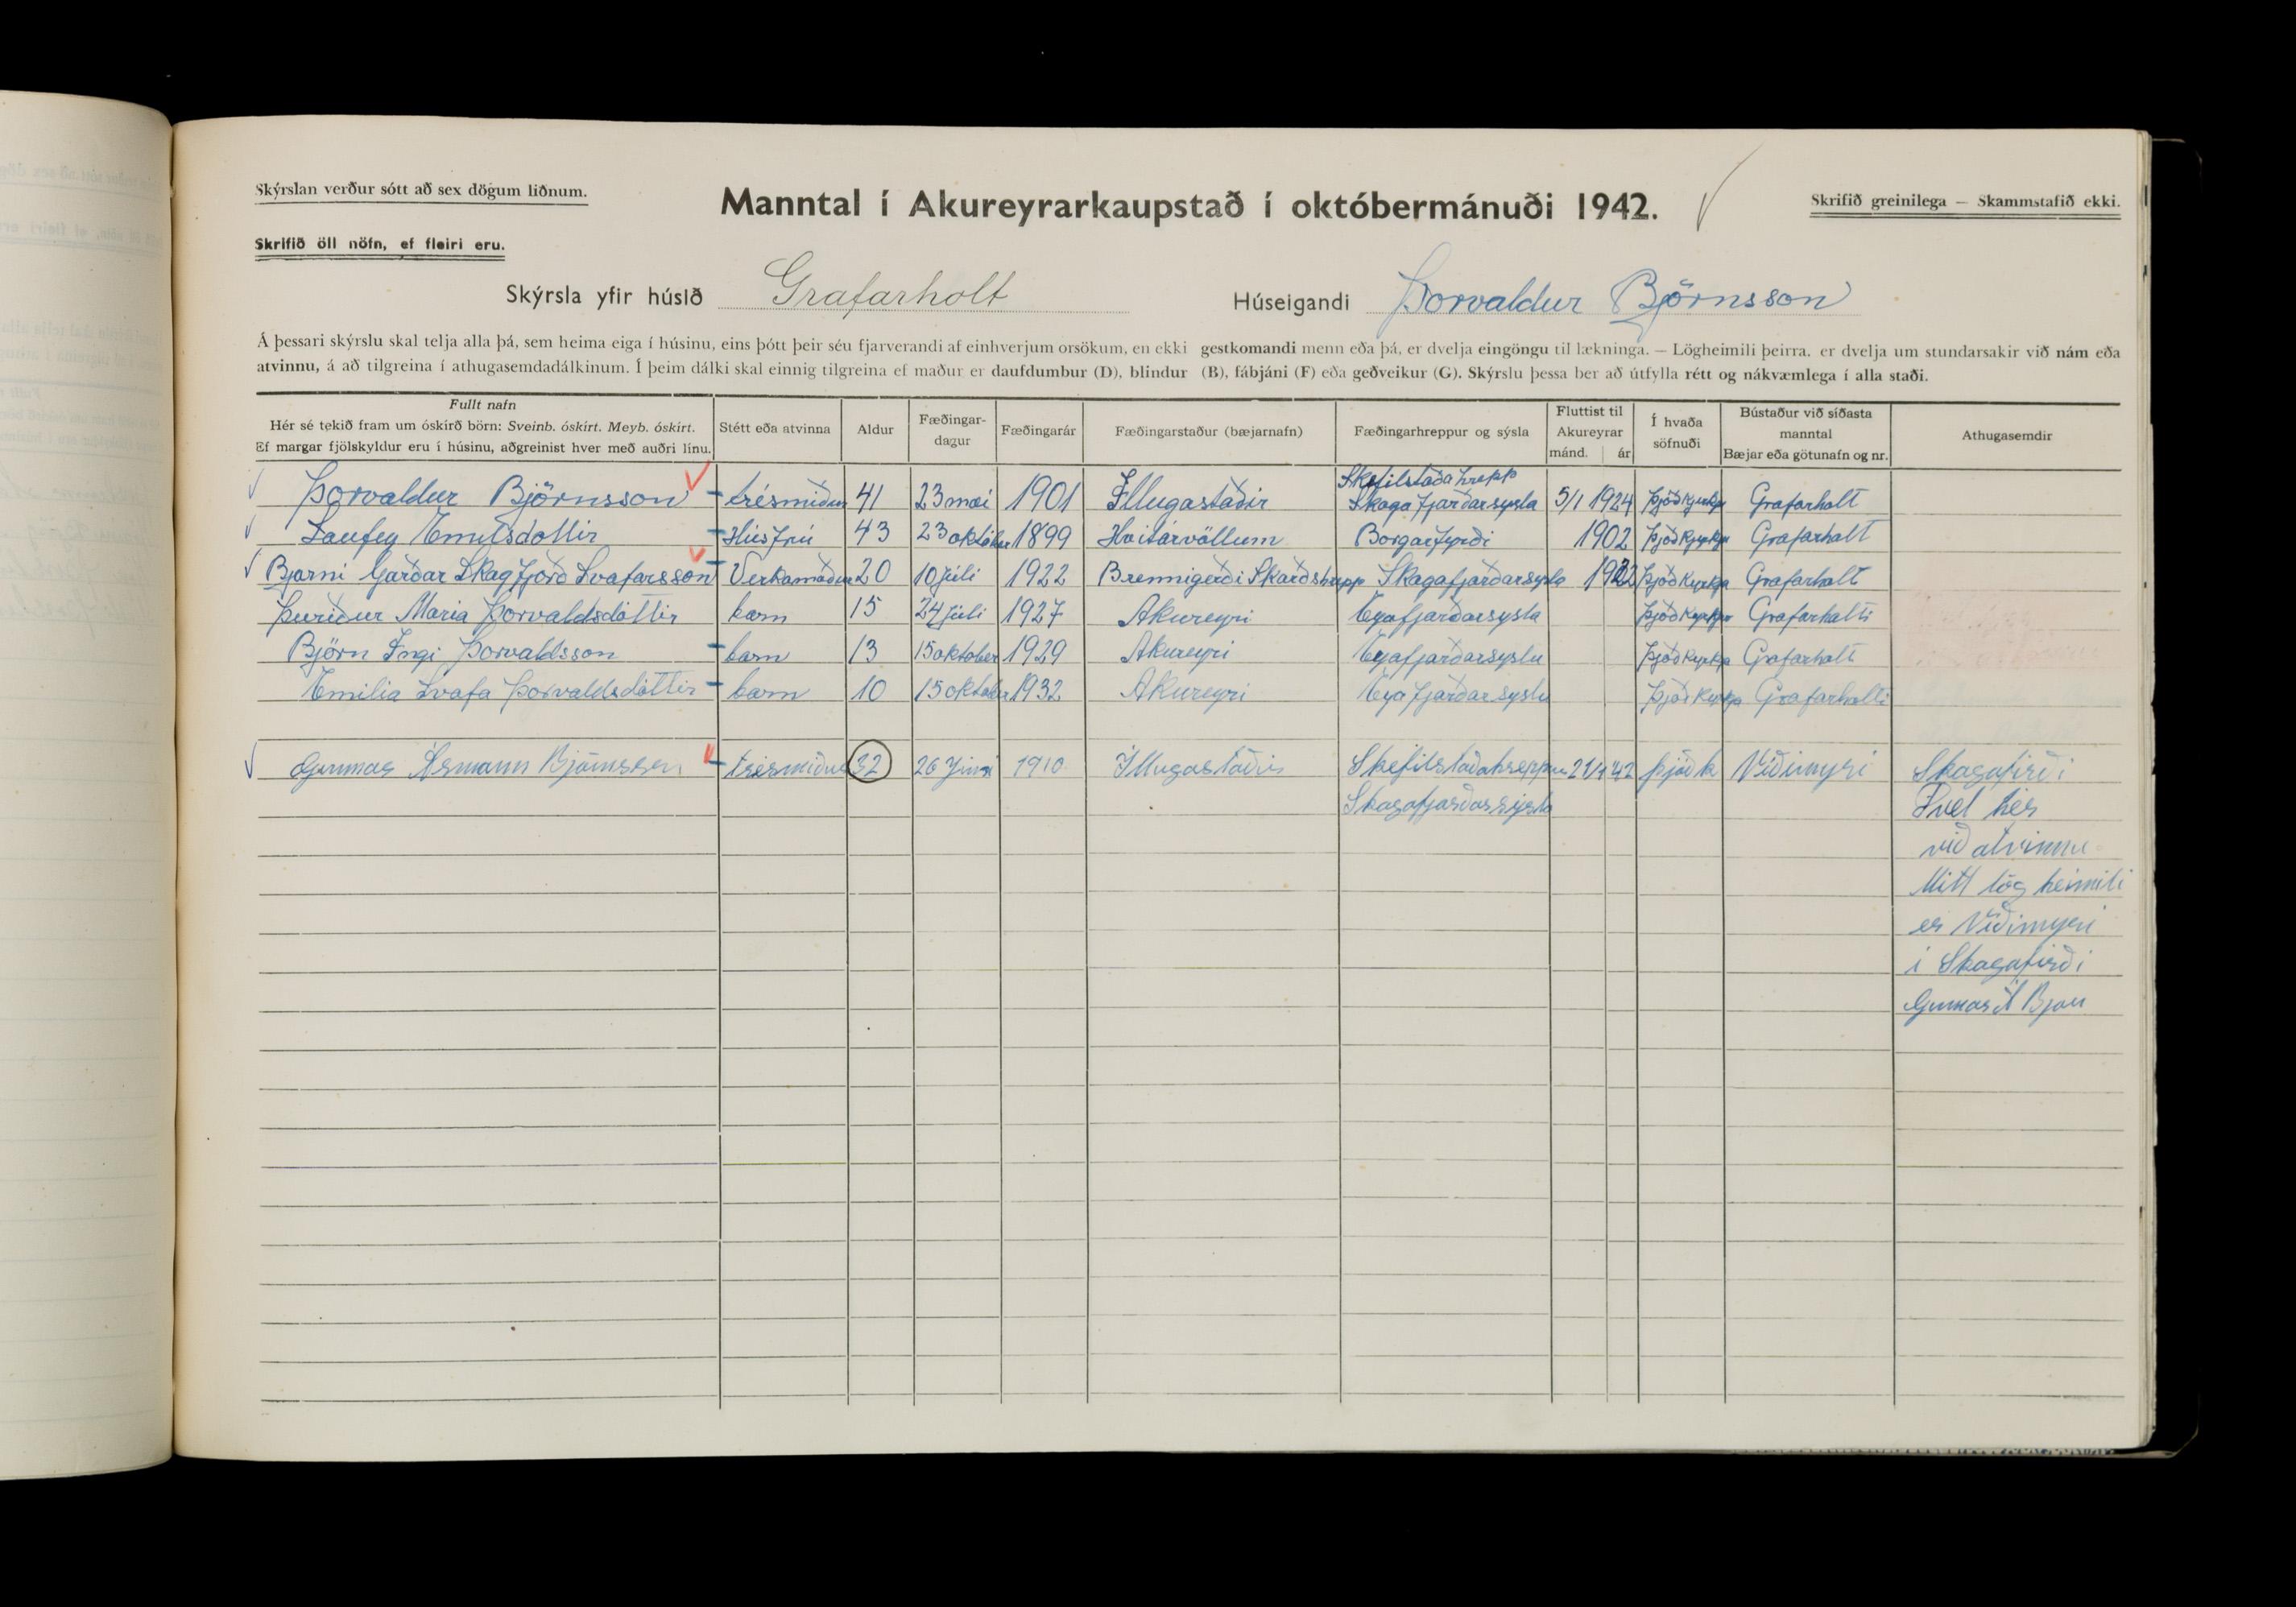 Skýrslan verður sótt að sex dögum liðnum.
Manntal í Akureyrarkaupstað í októbermánuði 1942.
Skrifið greinilega — Skammstafið ekki.
Skrifið öll nöfn, ef fleiri eru.
Skýrsla yfir húsið Grafarholt Húseigandi Þorvaldur Björnsson
Á þessari skýrslu skal telja alla þá, sem heima eiga í húsinu, eins þótt þeir séu fjarverandi af einhverjum orsökum, en ekki gestkomandi menn eða þá, er dvelja eingöngu til lækninga. — Lögheimili þeirra, er dvelja um stundarsakir við nám eða
atvinnu, á að tilgreina í athugasemdadálkinum. Í þeim dálki skal einnig tilgreina ef maður er daufdumbur (D), blindur (B), fábjáni (F) eða geðveikur (G). Skýrslu þessa ber að útfylla rétt og nákvæmlega í alla staði.
Fullt nafn
Hér sé tekið fram um óskírð börn: Sveinb. óskírt. Meyb. óskírt.
Ef margar fjölskyldur eru í húsinu, aðgreinist hver með auðri línu.
Stétt eða atvinna
Aldur
Fæðingar-
dagur
Fæðingarár
Fæðingarstaður (bæjarnafn)
Fæðingarhreppur og sýsla
Fluttist til
Akureyrar
mánd. ár
Í hvaða
söfnuði
Bústaður við síðasta
manntal
Bæjar eða götunafn og nr.
Athugasemdir
Skefilstaðahrepp
Þorvaldur Björnsson trésmiður 41 23 mai 1901 Illugastaðir Skagafjarðarsysla 5/1 1924 Þjóðkyrkja Grafarholt
Laufey Emilsdottir Húsfrú 43 23 október 1899 Hvitárvöllum Borgarfyrði 1902 Þjóðkyrkja Grafarholt
Bjarni Garðar Skagfjörð Svafarsson Verkamaður 20 10 júli 1922 Brennigerði Skarðshrepp Skagafjarðarsysla 1922 Þjóðkyrkja Grafarholt
Þuriður Maria Þorvaldsdóttir barn 15 24 júli 1927 Akureyri Eyafjarðarsysla Þjóðkyrkja Grafarholti
Björn Ingi Þorvaldsson barn 13 15 oktober 1929 Akureyri Eyafjarðarsyslu Þjóðkyrkja Grafarholt
Emilia Svafa Þorvaldsdóttir barn 10 15 oktober 1932 Akureyri Eyafjarðarsyslu Þjóðkyrkja Grafarholti
Gunnar Ásmann Björnsson trésmiður 32 26 Júní 1910 Illugastaðir Skefilstaðahreppur 21/1 42 þjóðk Viðimyri Skagafirði
Skagafjarðarsýsla Dvel hér
við atvinnu
Mitt lögheimili
er Viðimyri
i Skagafirði
Gunnar Á Bjön